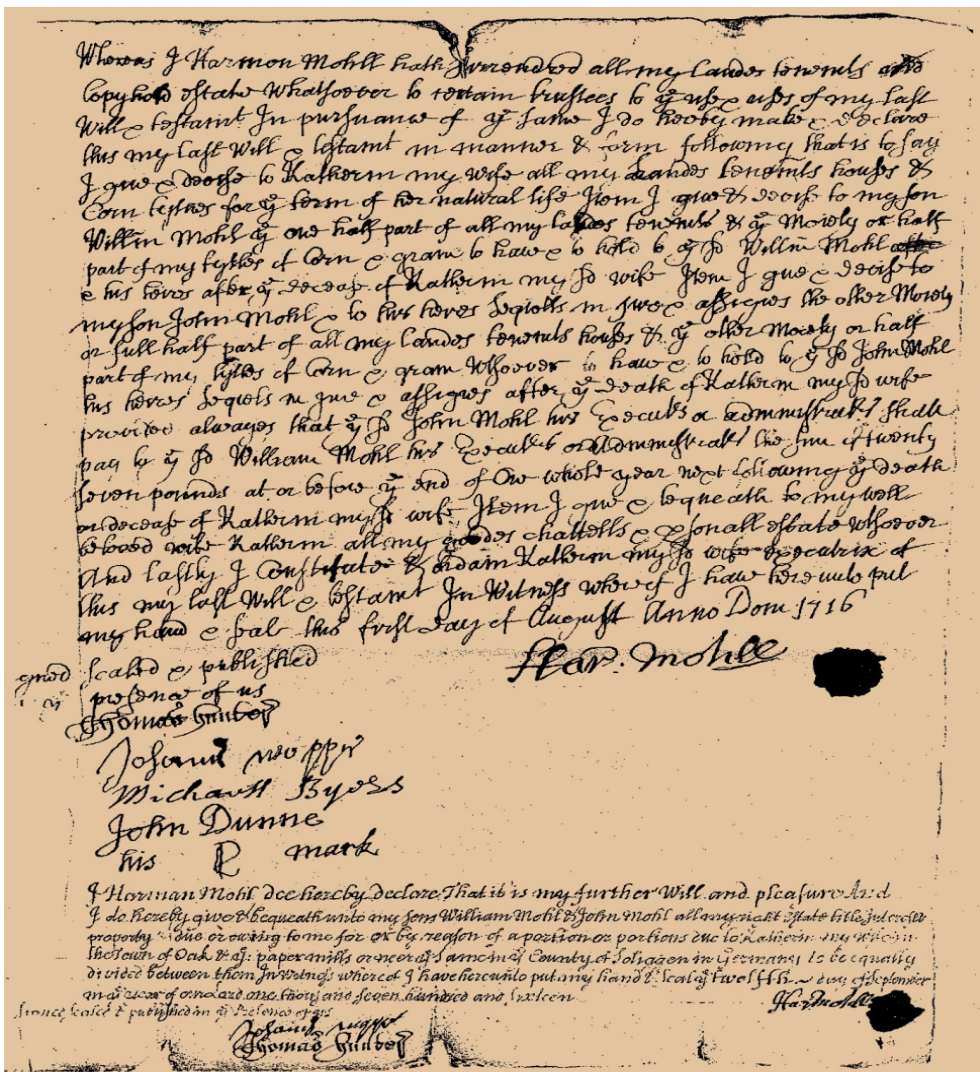 Whereas I Harmon Mohll hath Surrendred all my Landes tenemts and
Copyhold estate Whatsoever to certain trustees to ye use & uses of my last
Will & testamt In pursuance of ye same I do hereby make & declare
this my last Will & testamt in manner & form following that is to say
I give & devise to Katherin my wife all my Landes tenemts houses &
Corn tythes for ye term of her natural life Item I give & devise to my son
Willm Mohl ye one half part of all my landes tenemts & ye Moiety or half
part of my tythes of Corn & grain to have & to hold to ye sd Willm Mohl
& his heires after ye decease of Katherin my sd wife Item I give & devise to
my son John Mohl & to his heires Sequells in & assignes the other Moiety
or full half part of all my Landes tenemts houses & ye other Moiety or half
part of my tythes of Corn & grain Whsoever to have & to hold to ye sd John Mohl
his heires Sequels in & assignes after ye death of Katherin my sd wife
provided alwayes that ye sd John Mohl his Executs or administrats shall
pay to ye sd William Mohl his Executs or administrats the sum of twenty
seven pounds at or before ye end of One whole year next following ye death
or decease of Katherin my sd wife Item I give & bequeath to my well
beloved wife Katherin all my goodes chattells & psonall estate whsoever
And lastly I Constitute & ordain Katherin my sd wife Execatrix of
this my last Will & testamt In Witness where of I have here unto put
my hand & seal this first day of August Anno Dom 1716
Har. Mohll
gned sealed & published
presence of us
Thomas Hunter
Johann wopper
Michaell Byers
John Dunne
his mark
I Harman Mohl doe hereby declare That it is my further Will and pleasure And
I do hereby give & bequeath unto my sons William Mohl & John Mohl all my right Estate title Interest
property due or owing to me for or by reason of a portion or portions due to Katherin my wife in
the Town of Oak & ye paper mills or near ye same in ye County of Soliggen in Germany to be equally
divided between them In witness where of I have here unto put my hand & seal ye twelfth day of September
in ye year of our Lord one thousand seven hundred and sixteen
Har mohll
signed sealed & published in ye presence of us
Johann wopper
Thomas Hunter